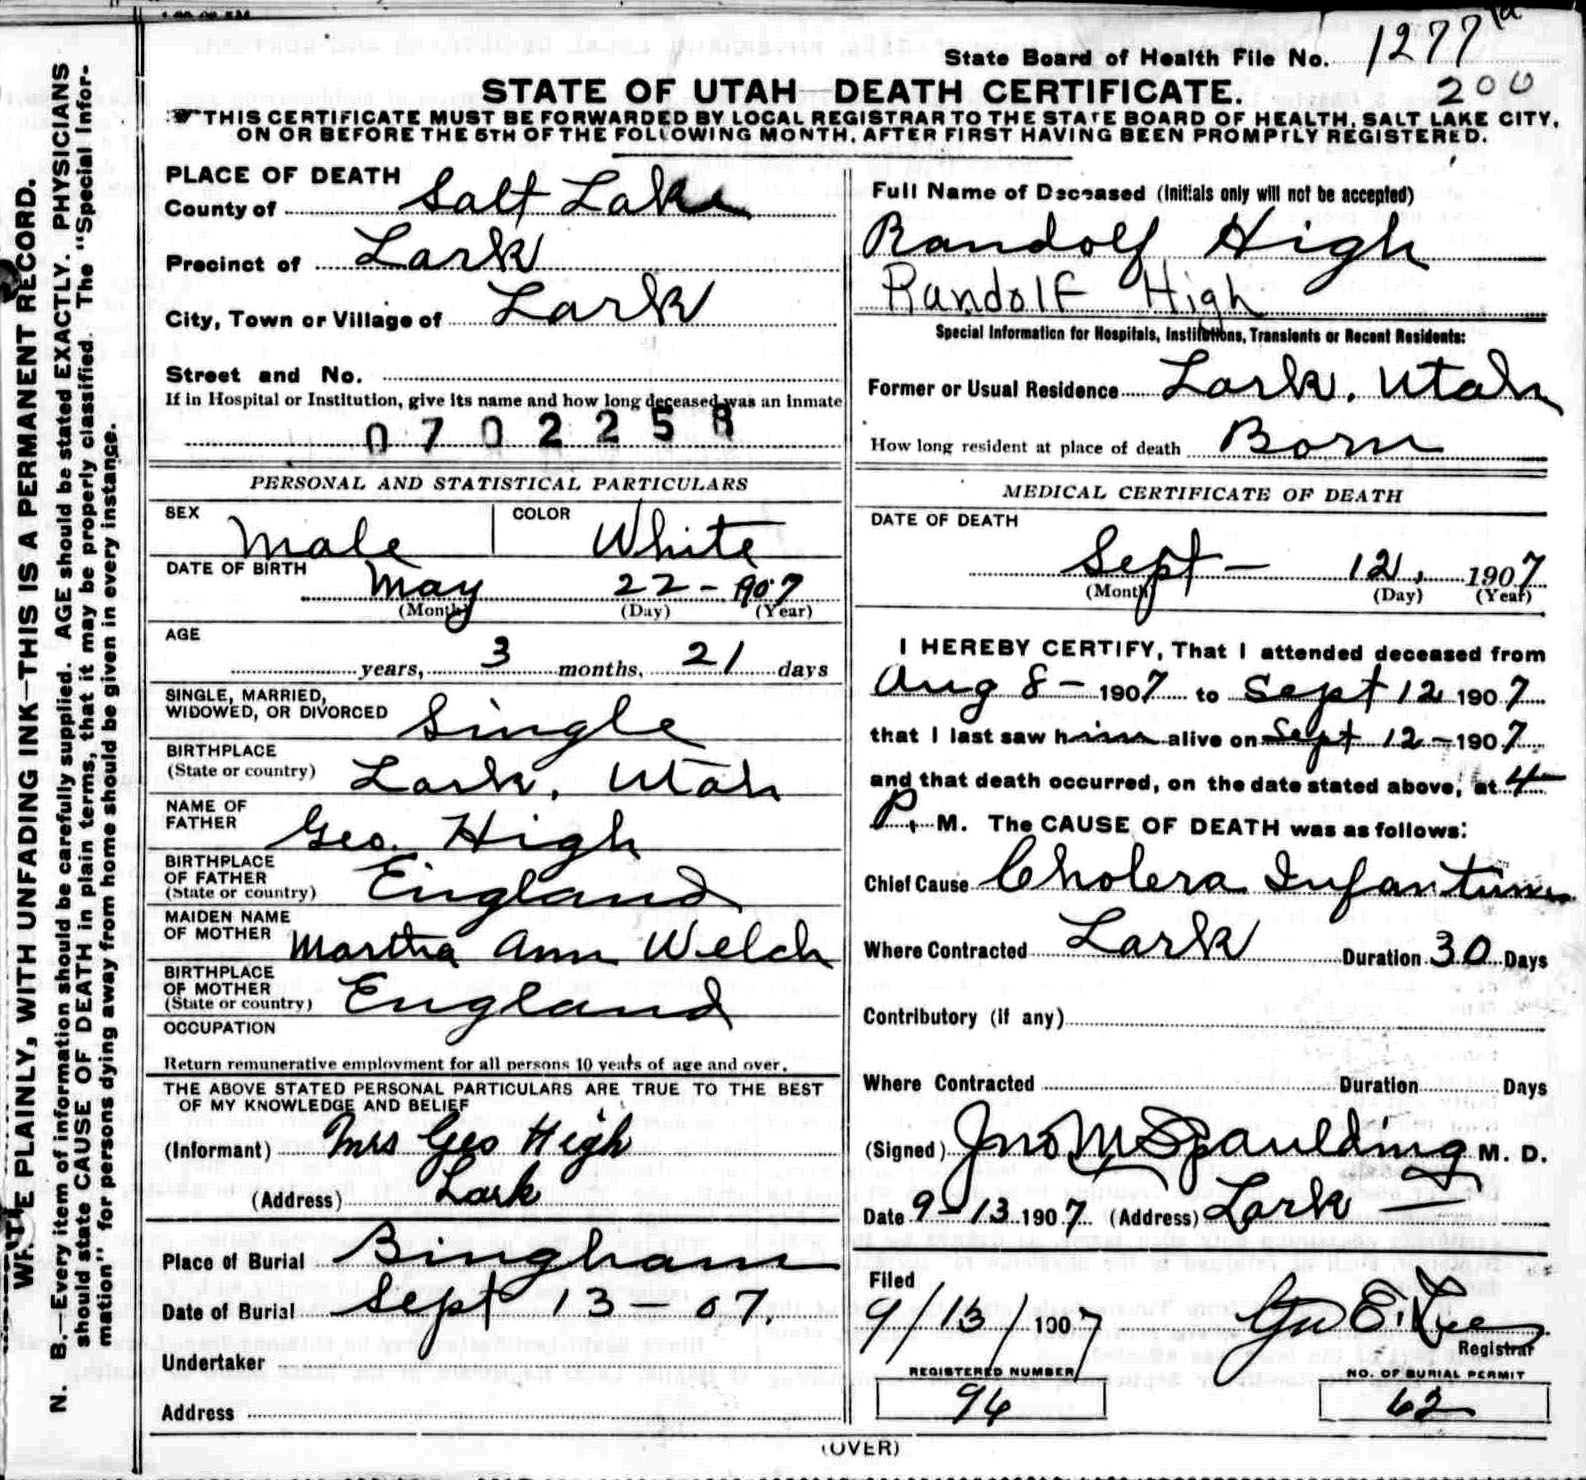 State Board of Health File No. 1277 a
200
STATE OF UTAH—DEATH CERTIFICATE.
☞THIS CERTIFICATE MUST BE FORWARDED BY LOCAL REGISTRAR TO THE STATE BOARD OF HEALTH, SALT LAKE CITY,
ON OR BEFORE THE 5TH OF THE FOLLOWING MONTH, AFTER FIRST HAVING BEEN PROMPTLY REGISTERED.
WRITE PLAINLY, WITH UNFADING INK—THIS IS A PERMANENT RECORD.
N. B.—Every item of information should be carefully supplied. AGE should be stated EXACTLY. PHYSICIANS
should state CAUSE OF DEATH in plain terms, that it may be properly classified. The "Special Infor-
mation" for persons dying away from home should be given in every instance.
PLACE OF DEATH
County of Salt Lake
Precinct of Lark
City, Town or Village of Lark
Street and No.
If in Hospital or Institution, give its name and how long deceased was an inmate
0702258
PERSONAL AND STATISTICAL PARTICULARS
SEX Male COLOR White
DATE OF BIRTH May 22-1907
(Month) (Day) (Year)
AGE
years, 3 months, 21 days
SINGLE, MARRIED,
WIDOWED, OR DIVORCED Single
BIRTHPLACE
(State or country) Lark, Utah
NAME OF
FATHER Geo. High
BIRTHPLACE
OF FATHER
(State or country) England
MAIDEN NAME
OF MOTHER Martha Ann Welch
BIRTHPLACE
OF MOTHER
(State or country) England
OCCUPATION
Return remunerative employment for all persons 10 years of age and over.
THE ABOVE STATED PERSONAL PARTICULARS ARE TRUE TO THE BEST
OF MY KNOWLEDGE AND BELIEF
(Informant) Mrs Geo High
(Address) Lark
Place of Burial Bingham
Date of Burial Sept 13-07.
Undertaker
Address
Full Name of Deceased (Initials only will not be accepted)
Randolf High
Randolf High
Special Information for Hospitals, Institutions, Transients or Recent Residents:
Former or Usual Residence Lark. Utah
How long resident at place of death Born
MEDICAL CERTIFICATE OF DEATH
DATE OF DEATH
Sept - 12, 1907
(Month) (Day) (Year)
I HEREBY CERTIFY, That I attended deceased from
Aug 8- 1907 to Sept 12 1907
that I last saw him alive on Sept 12-1907
and that death occurred, on the date stated above, at 4
P. M. The CAUSE OF DEATH was as follows:
Chief Cause Cholera Infantum
Where Contracted Lark Duration 30 Days
Contributory (if any)
Where Contracted Duration Days
(Signed) Jno M Spaulding M. D.
Date 9-13 1907 (Address) Lark
Filed
9/13/1907 Geo E. Lee
Registrar
REGISTERED NUMBER NO. OF BURIAL PERMIT
94 62
(OVER)